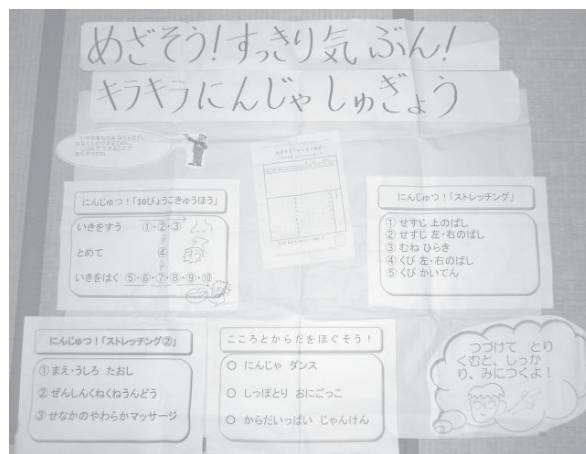 めざそう!すっきり気ぶん!
キラキラにんじゃしゅぎょう
にんじゅつ!「10びょうこきゅうほう」
いきをすう ①・②・③
とめて ④
いきをはく ⑤・⑥・⑦・⑧・⑨・⑩
にんじゅつ!「ストレッチング」
① せすじ 上のばし
② せすじ 左・右のばし
③ むね ひらき
④ くび 左・右のばし
⑤ くび かいてん
にんじゅつ!「ストレッチング②」
① まえ・うしろ たおし
② ぜんしんくねくねうんどう
③ せなかのやわらかマッサージ
こころとからだをほぐそう!
○ にんじゃ ダンス
○ しっぽとり おにごっこ
○ からだいっぱい じゃんけん
つづけて とり
くむと、しっか
り、みにつくよ!